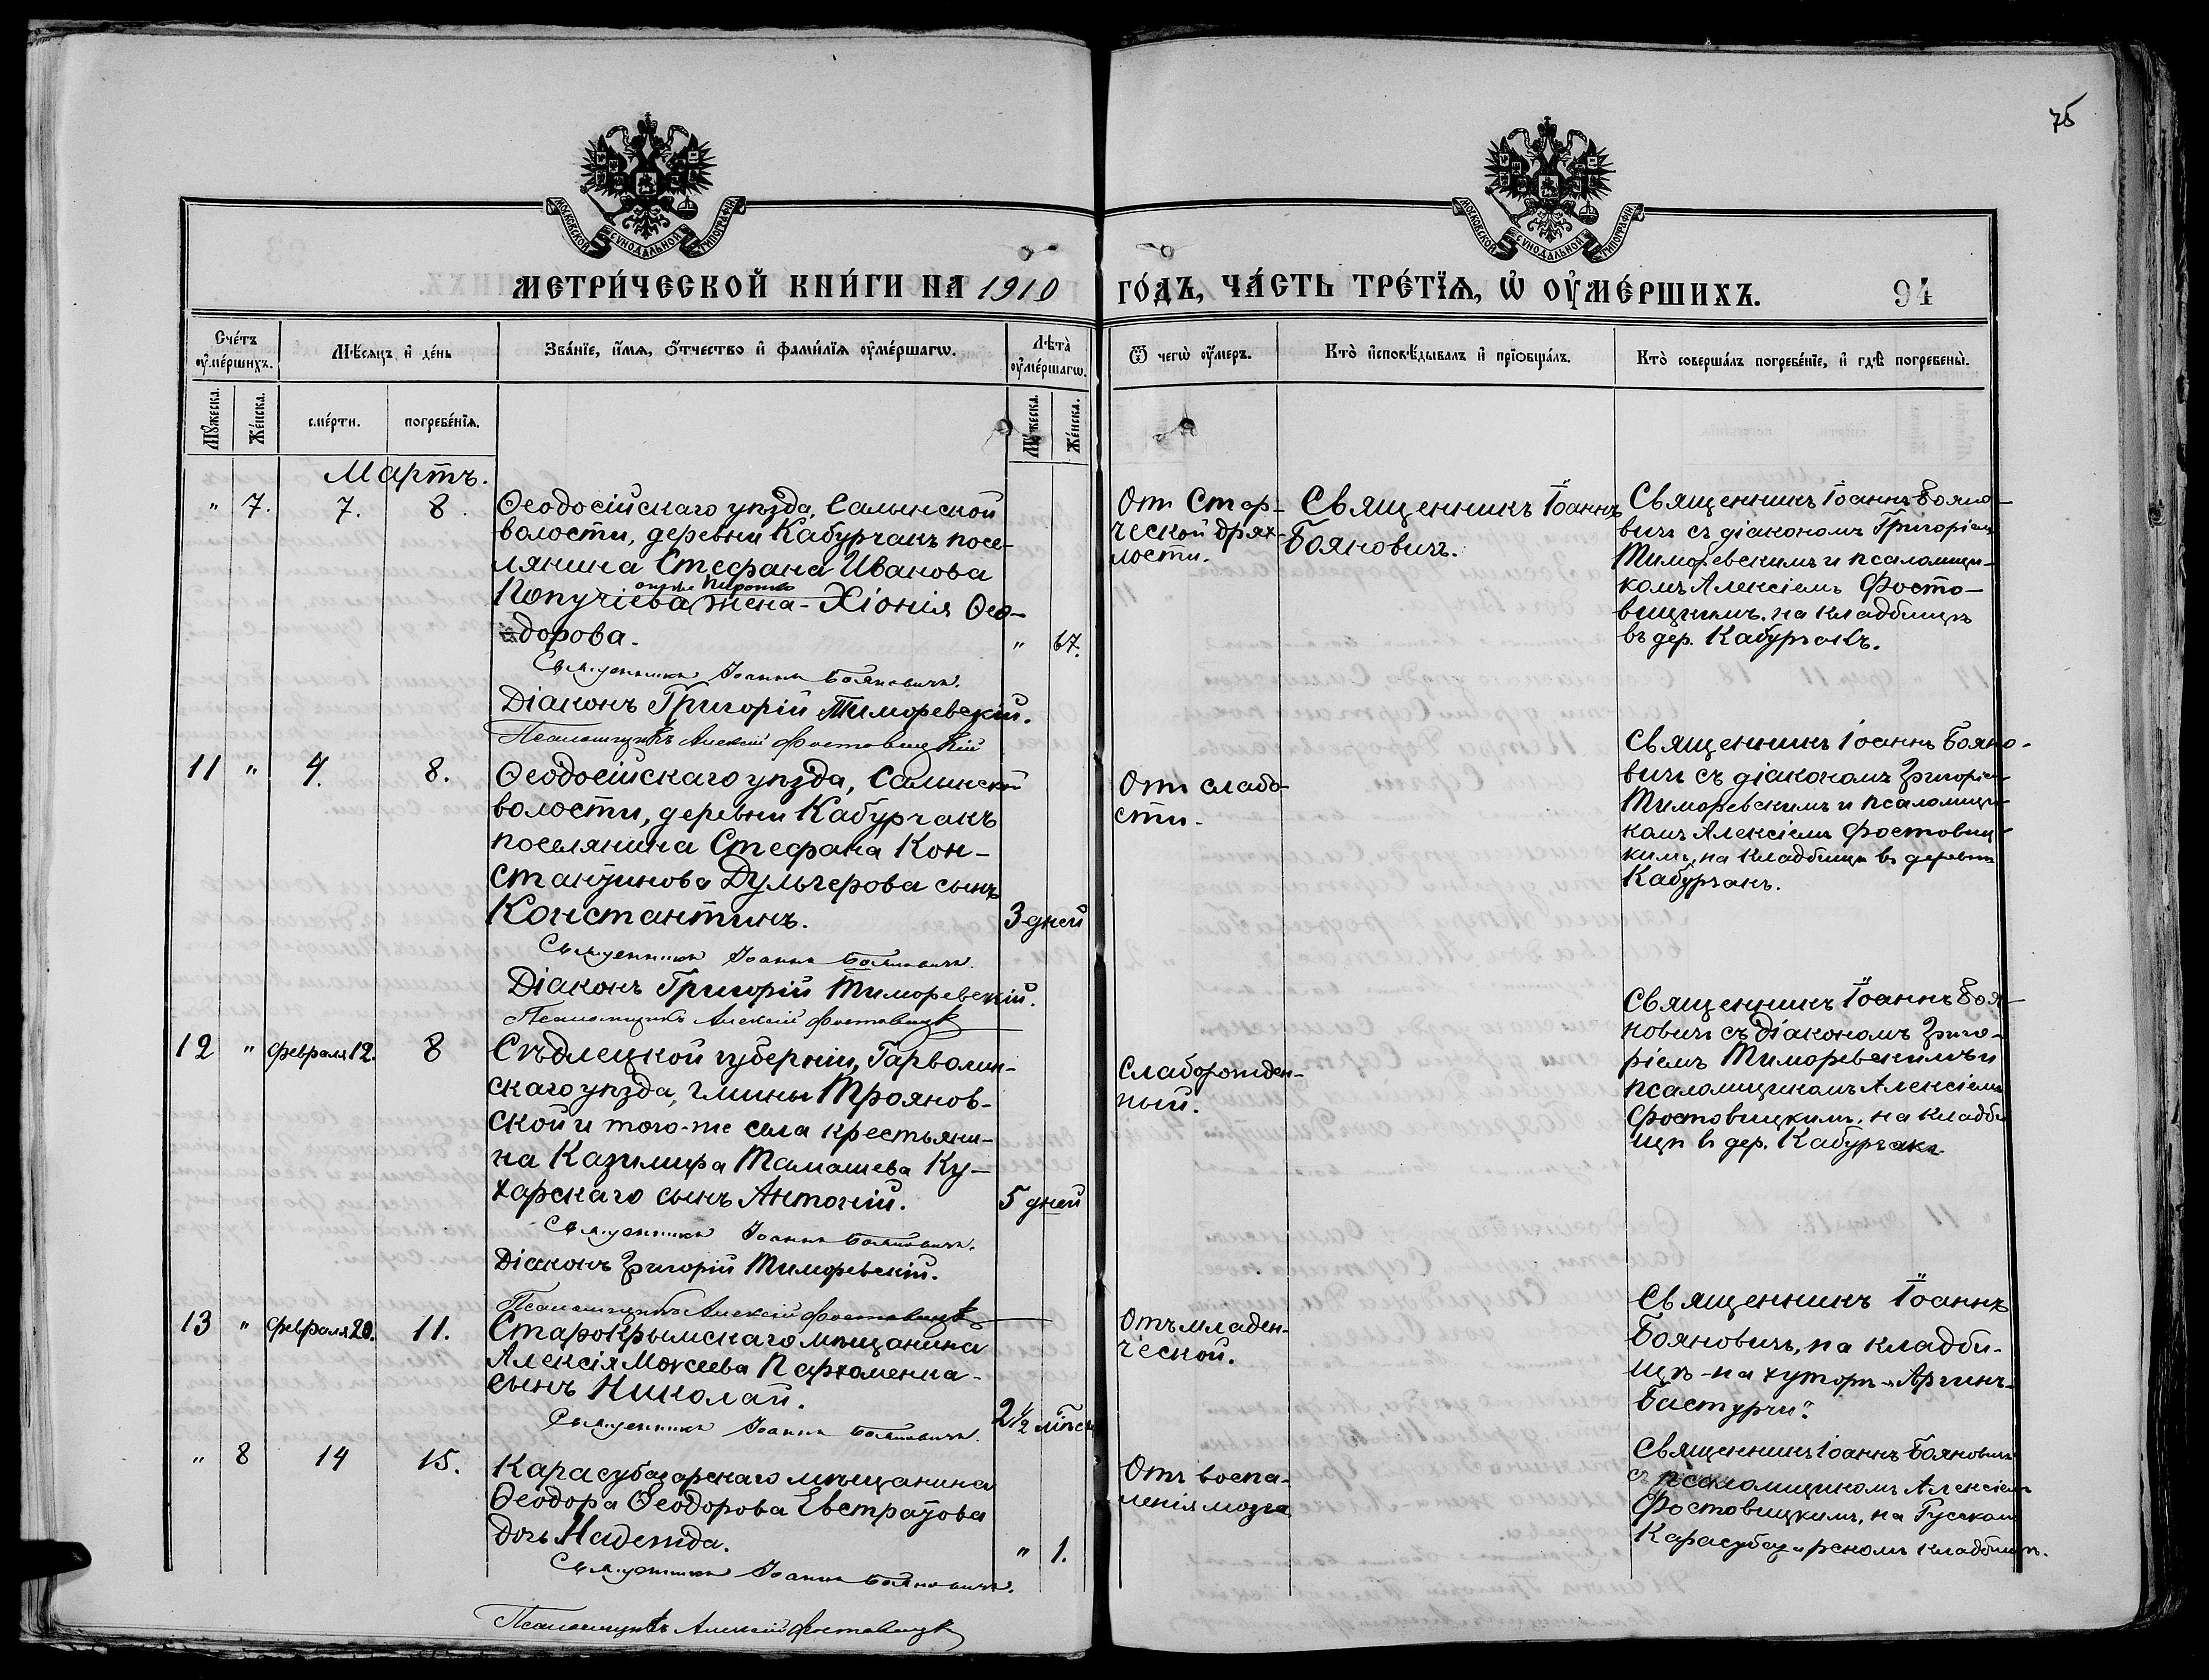 75
МОСКОВСКОЙ СѴНОДАЛЬНОЙ ТИПОГРАФІИ
МОСКОВСКОЙ СѴНОДАЛЬНОЙ ТИПОГРАФІИ
МЕТРИ́ЧЕСКОЙ КНИ́ГИ НА 1910
ГО́ДЪ, ЧА́СТЬ ТРЕ́ТЇѦ, Ѡ҆ ОУ҆МЕ́РШИХЪ.
94
Сче́тъ
оу҆ме́ршихъ.
Мѣ́сяцъ и҆ де́нь
Зва́нїе, и҆́мѧ, ѻ҆́тчество и҆ фами́лїѧ оу҆ме́ршагѡ.
Лѣ́та
оу҆ме́ршагѡ.
Мꙋ́жеска.
Же́нска.
сме́рти.
погребе́нїѧ.
Мꙋ́жеска.
Же́нска.
Ѿ чегѡ̀ оу҆́меръ.
Кто̀ и҆сповѣ́дывалъ и҆ прїѻбща́лъ.
Кто̀ соверша́лъ погребе́нїе, и҆ гдѣ̀ погребены̀.
Мартъ.
" 7. 7. 8.
Ѳеодосійскаго уѣзда, Салынской
волости, деревни Кабурчакъ посе-
лянина Стефана Иванова
Копучіева жена - Хіонія Ѳео-
дорова. " 67.
Священникъ Іоаннъ Бояновичъ.
Діаконъ Григорій Тиморевскій.
Псаломщикъ Алексій Фостовицкій
Отъ Стар-
ческой дрях-
лости.
Священникъ Іоаннъ
Бояновичъ.
Священникъ Іоаннъ Бояно-
вичъ съ діакономъ Григоріемъ
Тиморевскимъ и псаломщи-
комъ Алексіемъ Фосто-
вицкимъ, на кладбищѣ
въ дер. Кабурчакъ.
11 " 4. 8.
Ѳеодосійскаго уѣзда, Салынской
волости, деревни Кабурчакъ
поселянина Стефана Кон-
стантинова Дульгерова сынъ
Константинъ. 3 дней
Священникъ Іоаннъ Бояновичъ.
Діаконъ Григорій Тиморевскій.
Псаломщикъ Алексій Фостовицк
Отъ слабо-
сти.
Священникъ Іоаннъ Бояно-
вичъ съ діакономъ Григоріем
Тиморевскимъ и псаломщи-
комъ Алексіемъ Фостовиц-
кимъ, на кладбищѣ въ деревнѣ
Кабурчакъ.
12 " Февраля 12. 8
Сѣдлецкой губерніи, Гарволин-
скаго уѣзда, гмины Трояновъ-
ской и того-же села крестьяни-
на Казимира Тамашева Ку-
харскаго сынъ Антоній. 5 дней
Священникъ Іоаннъ Бояновичъ.
Діаконъ Григорій Тиморевскій.
Псаломщикъ Алексій Фостовицк
Слаборожден-
ный.
Священникъ Іоаннъ Боя-
новичъ съ діакономъ Григо-
ріемъ Тиморевскимъ и
псаломщикомъ Алексіемъ
Фостовицкимъ, на кладби-
щѣ въ дер. Кабурчакъ
13 " Февраля 20. 11.
Старокрымскаго мѣщанина
Алексія Моисеева Пархоменка -
сынъ Николай. 2½ мѣсяц
Священникъ Іоаннъ Бояновичъ.
Отъ младен-
ческой.
Священникъ Іоаннъ
Бояновичъ, на кладби-
щѣ - на хуторѣ "Аргинъ-
Бастурчи".
" 8 14 15.
Карасубазарскаго мѣщанина
Ѳеодора Ѳеодорова Евстратова
дочь Надежда. " 1.
Священникъ Іоаннъ Бояновичъ.
Псаломщикъ Алексій Фостовицк
Отъ воспа-
ленія мозга
Священникъ Іоаннъ Бояновичъ
съ псаломщикомъ Алексіемъ
Фостовицкимъ, на Русском
Карасубазарскомъ кладбищѣ.